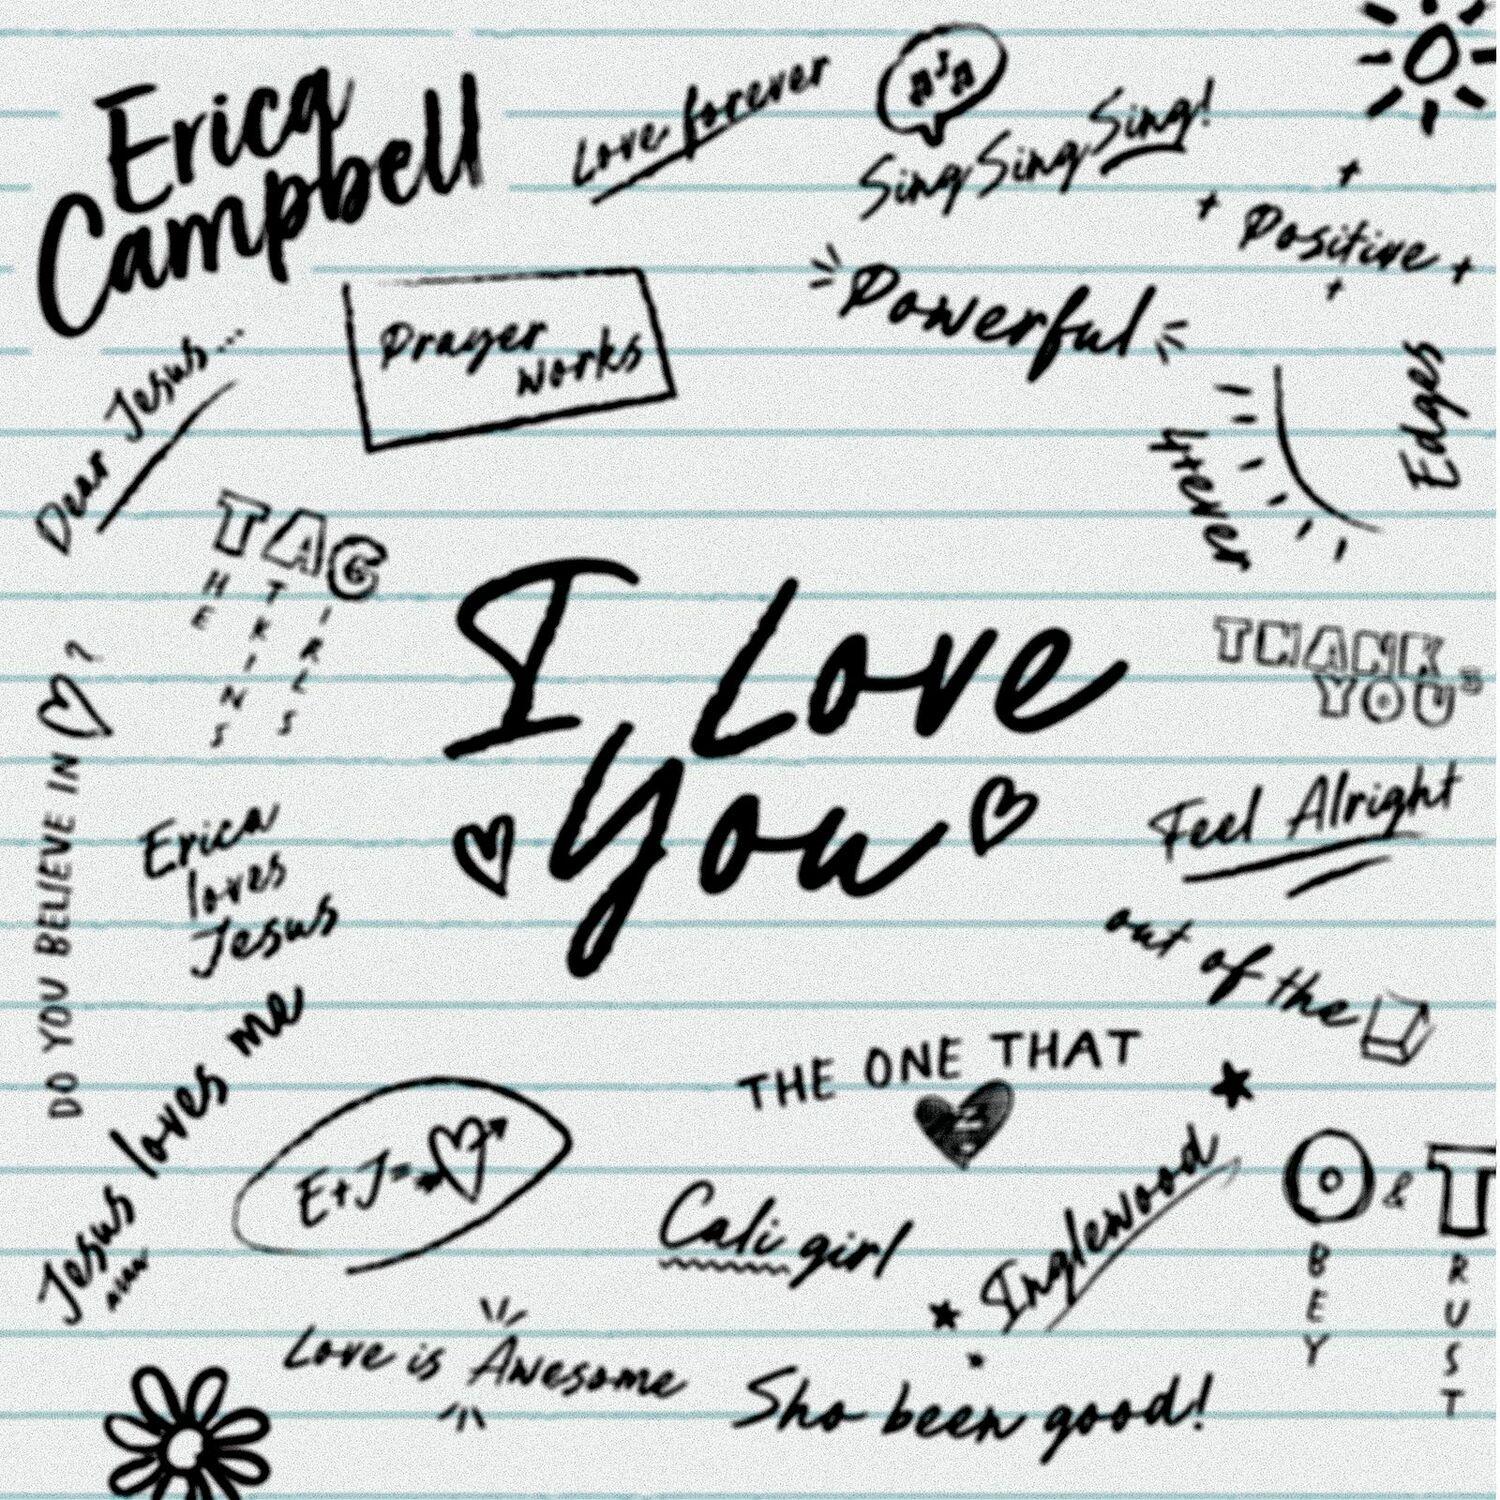 Erica
Campbell
Love forever
Sing Sing Sing!
Positive
Powerful
Prayer
works
Dear Jesus...
Edges
4+ever
TAG
HE
TKINS
IRLS
I Love
You
THANK
YOU
DO YOU BELIEVE IN ?
Erica
loves
Jesus
Feel Alright
out of the
Jesus loves me
E+J=
THE ONE THAT
Cali girl
Inglewood
O & T
BEY
RUST
Love is Awesome
Sho been good!